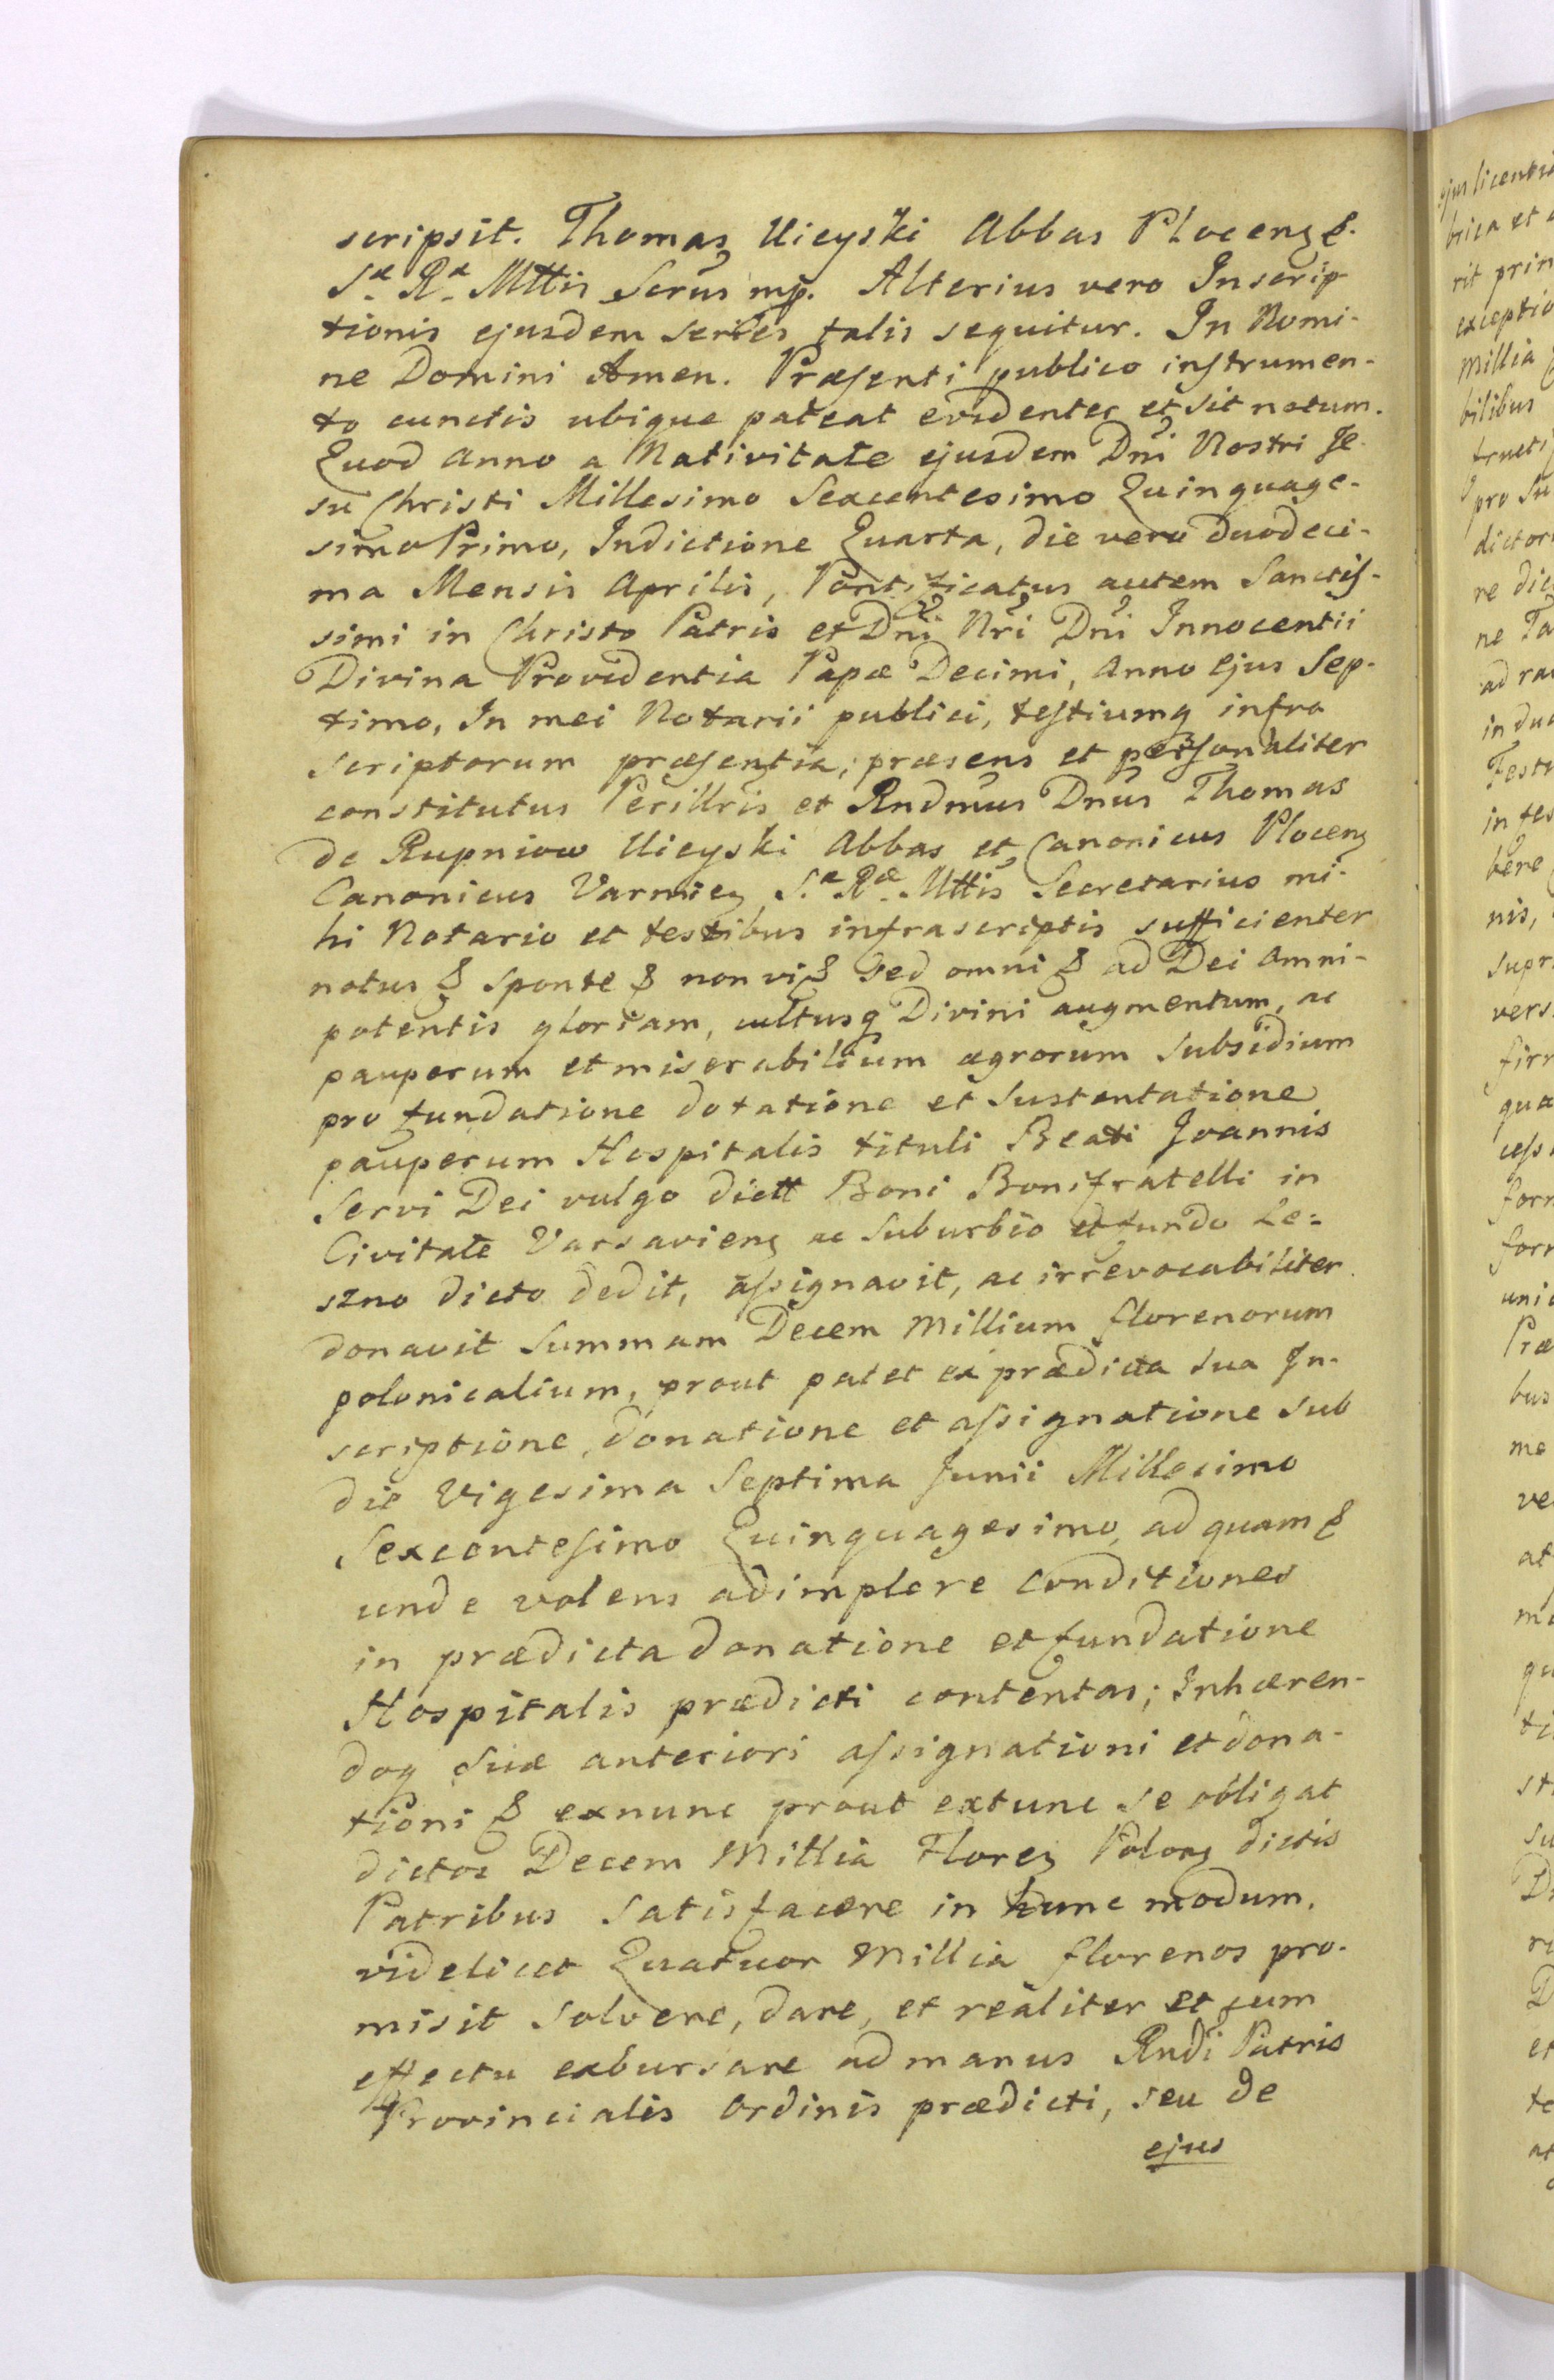 scripsit. Thomas Uieyski Abbas Plocens etc.
Sæ Ræ Mttis Scrus mp. Alterius vero Inscrip-
tionis ejusdem series talis sequitur. In Nomi-
ne Domini Amen. Præsenti publico instrumen-
to cunctis ubique pateat evidenter et sit notum.
Quod Anno a Nativitate ejusdem Dni Nostri Je-
su Christi Millesimo Sexcentesimo Quinquage-
simo Primo, Indictione Quarta, die vero duodeci-
ma Mensis Aprilis, Pontificatus autem Sanctis-
simi in Christo Patris et Dni Nri Dni Innocentii
Divina Providentia Papæ Decimi, Anno Ejus Sep-
timo, In mei Notarii publici, testiumq infra
scriptorum præsentia, præsens et personaliter
constitutus Perillris et Rndmus Dnus Thomas
de Rupniow Uieyski Abbas et Canonicus Plocens
Canonicus Varmiens Sæ Ræ Mttis Secretarius mi-
hi Notario et testibus infrascriptis sufficienter
notus etc sponte etc non vi etc sed omni etc ad Dei Omni-
potentis gloriam, cultusq Divini augmentum, ac
pauperum et miserabilium ægrorum subsidium
pro fundatione dotatione et sustentatione
pauperum Hospitalis tituli Beati Joannis
Servi Dei vulgo dictt Boni Bonifratelli in
Civitate Varsaviens ac suburbio et fundo Le=
szno dicto dedit, assignavit, ac irrevocabiliter
donavit Summam Decem Millium florenorum
polonicalium, prout patet ex prædicta sua In-
scriptione, donatione et assignatione sub
die Vigesima Septima Junii Millesimo
Sexcentesimo Quinquagesimo, ad quam etc
unde volens adimplere conditiones
in prædicta donatione et fundatione
Hospitalis prædicti contentas; Inhæren-
doq suæ anteriori assignationi et dona-
tioni etc exnunc prout extunc se obligat
dictos Decem Millia Florens Polons dictis
Patribus satisfacere in hunc modum.
videlicet Quatuor Millia florenos pro-
misit solvere, dare, et realiter et cum
effectu exbursare ad manus Rndi Patris
Provincialis Ordinis prædicti, seu de
ejus